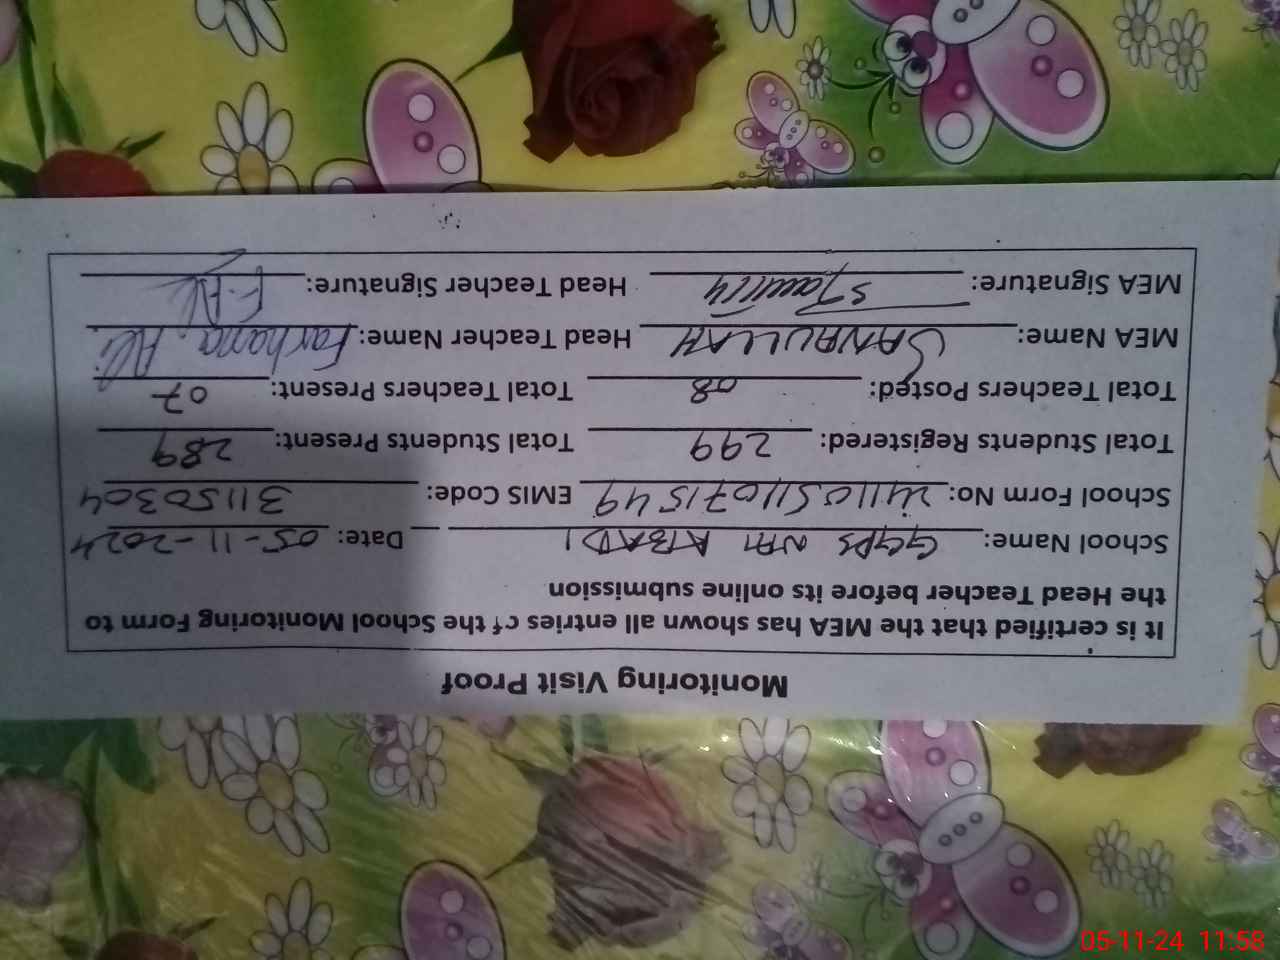 Monitoring Visit Proof
It is certified that the MEA has shown all entries of the School Monitoring Form to
the Head Teacher before its online submission
School Name: GGPS NAI ABADI Date: 05-11-2024
School Form No: 24110511071549 EMIS Code: 31150304
Total Students Registered: 299 Total Students Present: 289
Total Teachers Posted: 08 Total Teachers Present: 07
MEA Name: SANAULLAH Head Teacher Name: Farhana Ali
MEA Signature: Head Teacher Signature: F.Ali
05-11-24 11:58